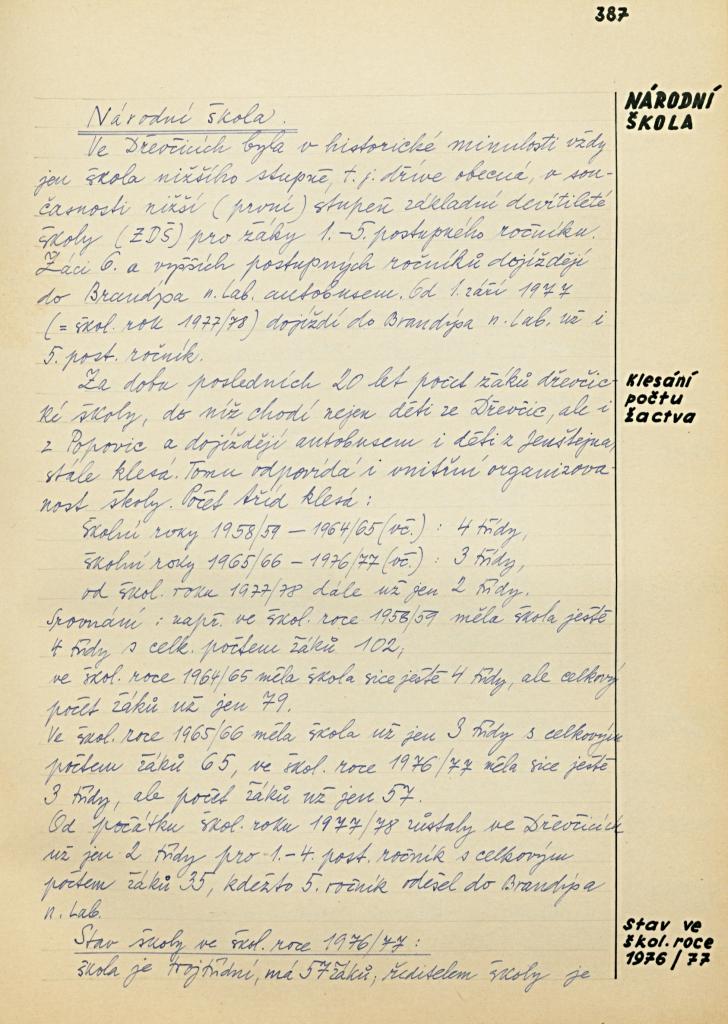 387
NÁRODNÍ
ŠKOLA
Národní škola.
Ve Dřevčicích byla v historické minulosti vždy
jen škola nižšího stupně, t.j. dříve obecná, v sou-
časnosti nižší (první) stupeň základní devítileté
školy (ZDŠ) pro žáky 1.-5. postupného ročníku.
Žáci 6. a vyšších postupných ročníků dojíždějí
do Brandýsa n. Lab. autobusem. Od 1. září 1977
(= škol. rok 1977/78) dojíždí do Brandýsa n. Lab. už i
5. post. ročník.
Klesání
počtu
žactva
Za dobu posledních 20 let počet žáků dřevčic-
ké školy, do níž chodí nejen děti ze Dřevčic, ale i
z Popovic a dojíždějí autobusem i děti z Jenštejna,
stále klesá. Tomu odpovídá i vnitřní organizova-
nost školy. Počet tříd klesá:
školní roky 1958/59 – 1964/65 (vč.) : 4 třídy,
školní roky 1965/66 – 1976/77 (vč.) : 3 třídy,
od škol. roku 1977/78 dále už jen 2 třídy.
Srovnání : např. ve škol. roce 1958/59 měla škola ještě
4 třídy s celk. počtem žáků 102,
ve škol. roce 1964/65 měla škola sice ještě 4 třídy, ale celkový
počet žáků už jen 79.
Ve škol. roce 1965/66 měla škola už jen 3 třídy s celkovým
počtem žáků 65, ve škol. roce 1976/77 měla sice ještě
3 třídy, ale počet žáků už jen 57.
Od počátku škol. roku 1977/78 zůstaly ve Dřevčicích
už jen 2 třídy pro 1.-4. post. ročník s celkovým
počtem žáků 35, kdežto 5. ročník odešel do Brandýsa
n. Lab.
Stav ve
škol. roce
1976/77
Stav školy ve škol. roce 1976/77 :
škola je trojtřídní, má 57 žáků; ředitelem školy je